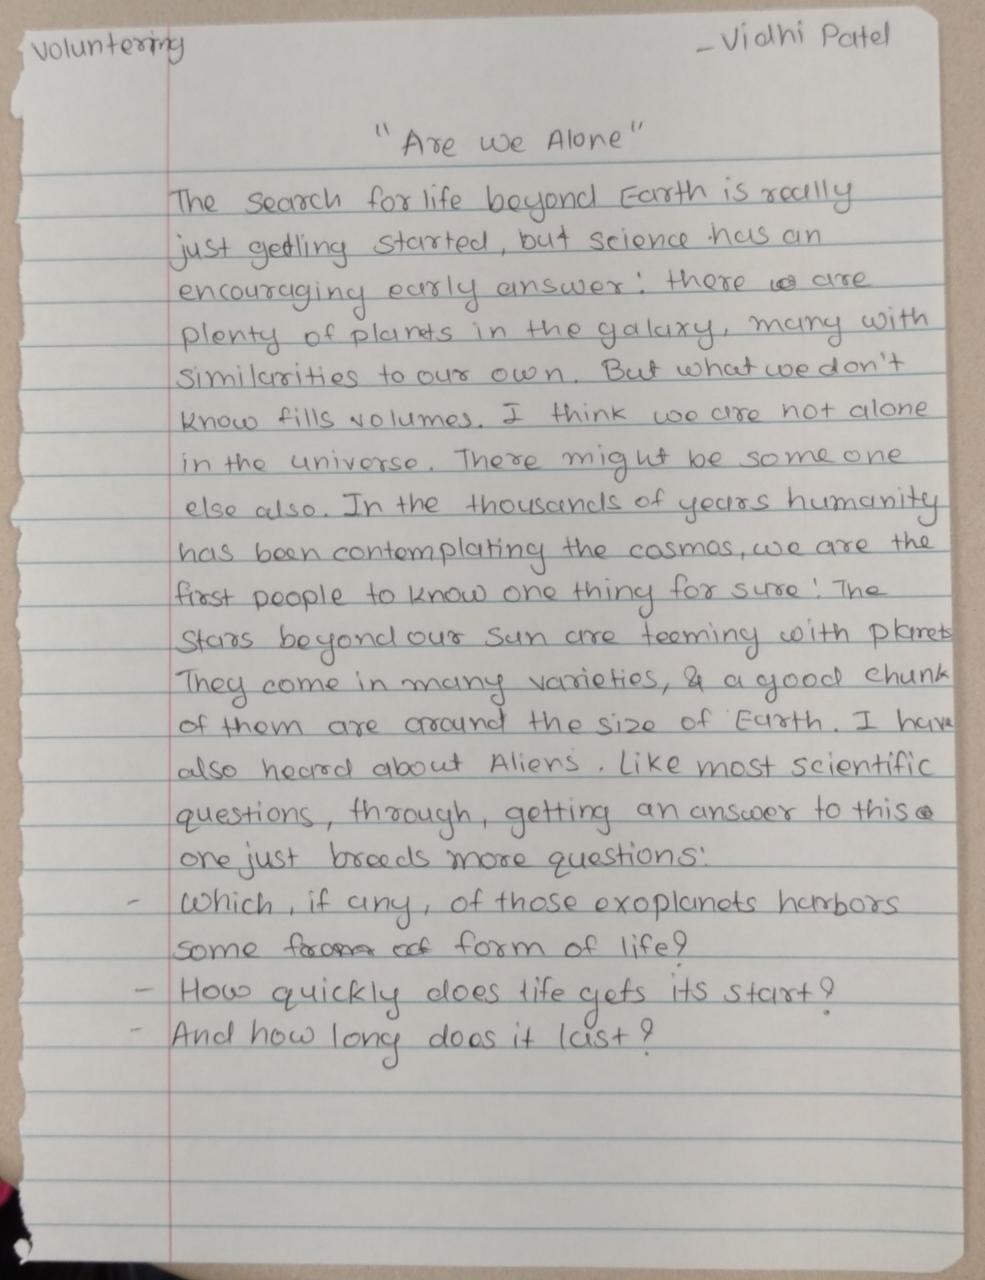 Voluntering
- Vidhi Patel
"Are We Alone"
The search for life beyond Earth is really
just getting started, but science has an
encouraging early answer: there are
plenty of planets in the galaxy, many with
similarities to our own. But what we don't
know fills volumes. I think we are not alone
in the universe. There might be some one
else also. In the thousands of years humanity
has been contemplating the cosmos, we are the
first people to know one thing for sure: The
stars beyond our sun are teeming with planets
They come in many varieties, & a good chunk
of them are around the size of Earth. I have
also heard about Aliens. Like most scientific
questions, through, getting an answer to this
one just breeds more questions:
- Which, if any, of those exoplanets harbors
some form of life?
- How quickly does life gets its start?
- And how long does it last?